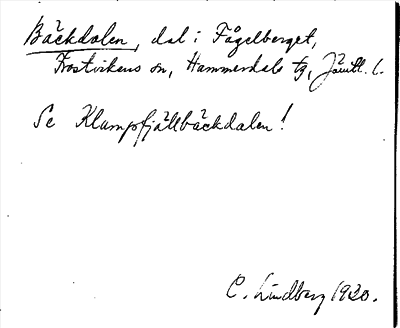 Bäckdalen, dal i Fågelberget,
Frostvikens sn, Hammerdals tg, Jämtl. l.
Se Klumpfjällbäckdalen!
C. Lindberg 1920.